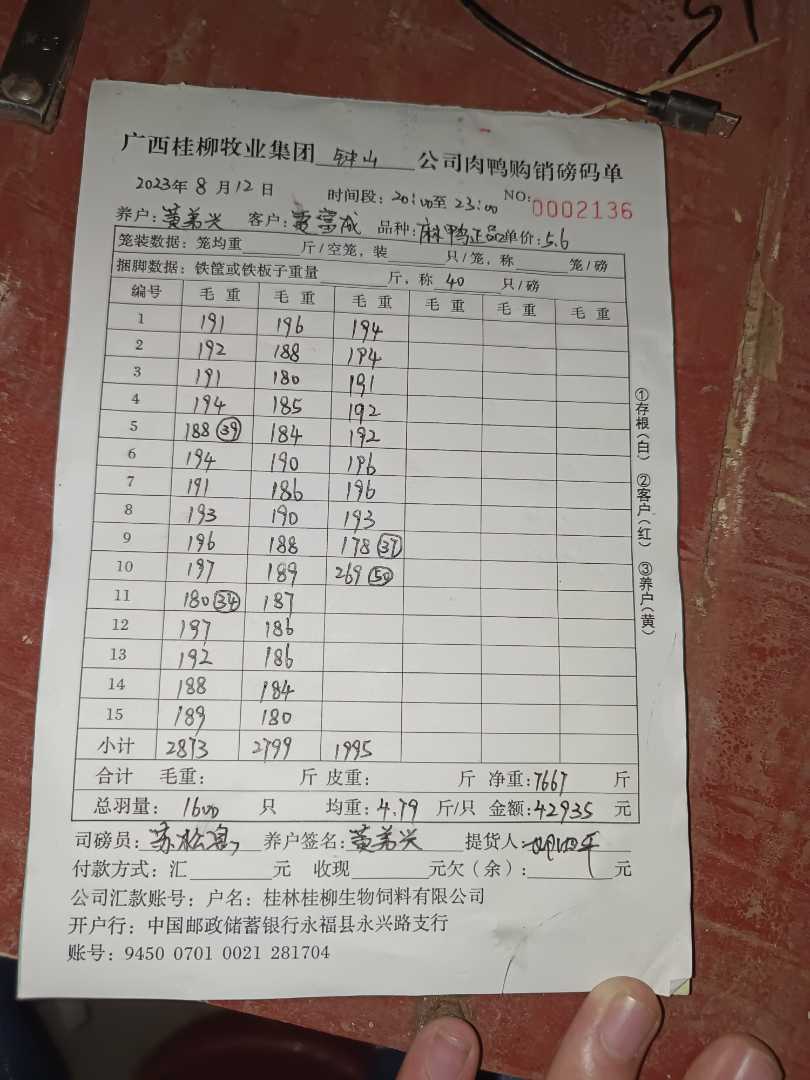 广西桂柳牧业集团 钟山 公司肉鸭购销磅码单
2023年 8 月 12 日 时间段：20:00至 23:00 NO: 0002136
养户：黄弟兴 客户：富成 品种：麻鸭正品 单价：5.6
笼装数据：笼均重______斤/空笼，装______只/笼，称______笼/磅
捆脚数据：铁筐或铁板子重量______斤，称 40 只/磅
编号 毛 重 毛 重 毛 重 毛 重 毛 重 毛 重
1 191 196 194
2 192 188 194
3 191 180 191
4 194 185 192
5 188 (39) 184 192
6 194 190 196
7 191 186 196
8 193 190 193
9 196 188 178 (37)
10 197 189 269 (50)
11 180 (34) 187
12 197 186
13 192 186
14 188 184
15 189 180
小计 2873 2799 1995
合计 毛重： 斤 皮重： 斤 净重：7667 斤
总羽量： 1600 只 均重：4.79 斤/只 金额：42935 元
司磅员：苏松 养户签名：黄弟兴 提货人：
付款方式：汇______元 收现______元欠（余）：______元
公司汇款账号：户名：桂林桂柳生物饲料有限公司
开户行：中国邮政储蓄银行永福县永兴路支行
账号：9450 0701 0021 281704
①存根（白） ②客户（红） ③养户（黄）